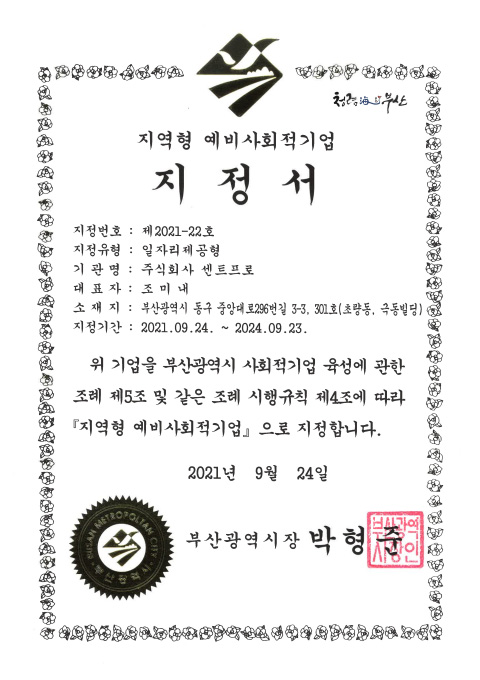 청렴海요 부산
지역형 예비사회적기업
지정서
지정번호 : 제2021-22호
지정유형 : 일자리제공형
기관명 : 주식회사 센트프로
대표자 : 조미내
소재지 : 부산광역시 동구 중앙대로296번길 3-3, 301호(초량동, 극동빌딩)
지정기간 : 2021.09.24. ~ 2024.09.23.
위 기업을 부산광역시 사회적기업 육성에 관한
조례 제5조 및 같은 조례 시행규칙 제4조에 따라
『지역형 예비사회적기업』으로 지정합니다.
2021년 9월 24일
부산광역시장 박형준
부산광역
시장인
BUSAN METROPOLITAN CITY
부산광역시